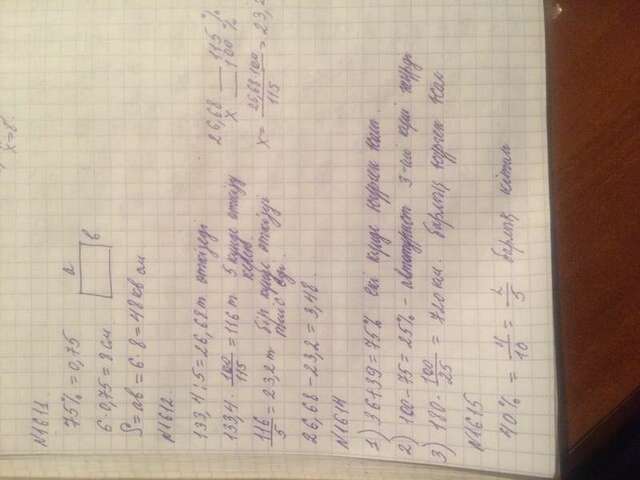 x=8.
N1611.
75% = 0,75
a
в
6·0,75=8см
S=ab=6·8=48кв см
N1612.
133,4:5=26,68т өткізеді
133,4·100/115=116т 5 күнде өткізу керек
116/5=23,2т бір күнде өткізуі тиіс еді.
26,68 — 115%
x — 100%
x=26,68·100/115=23,2
26,68-23,2=3,48.
N1614
1) 36+39=75% екі күнде жүрген жол.
2) 100-75=25% - автотурист 3-ші күні жүрді
3) 180·100/25=720км. барлық жүрген жол
N1615
40% = 4/10 = 2/5 барлық кітап